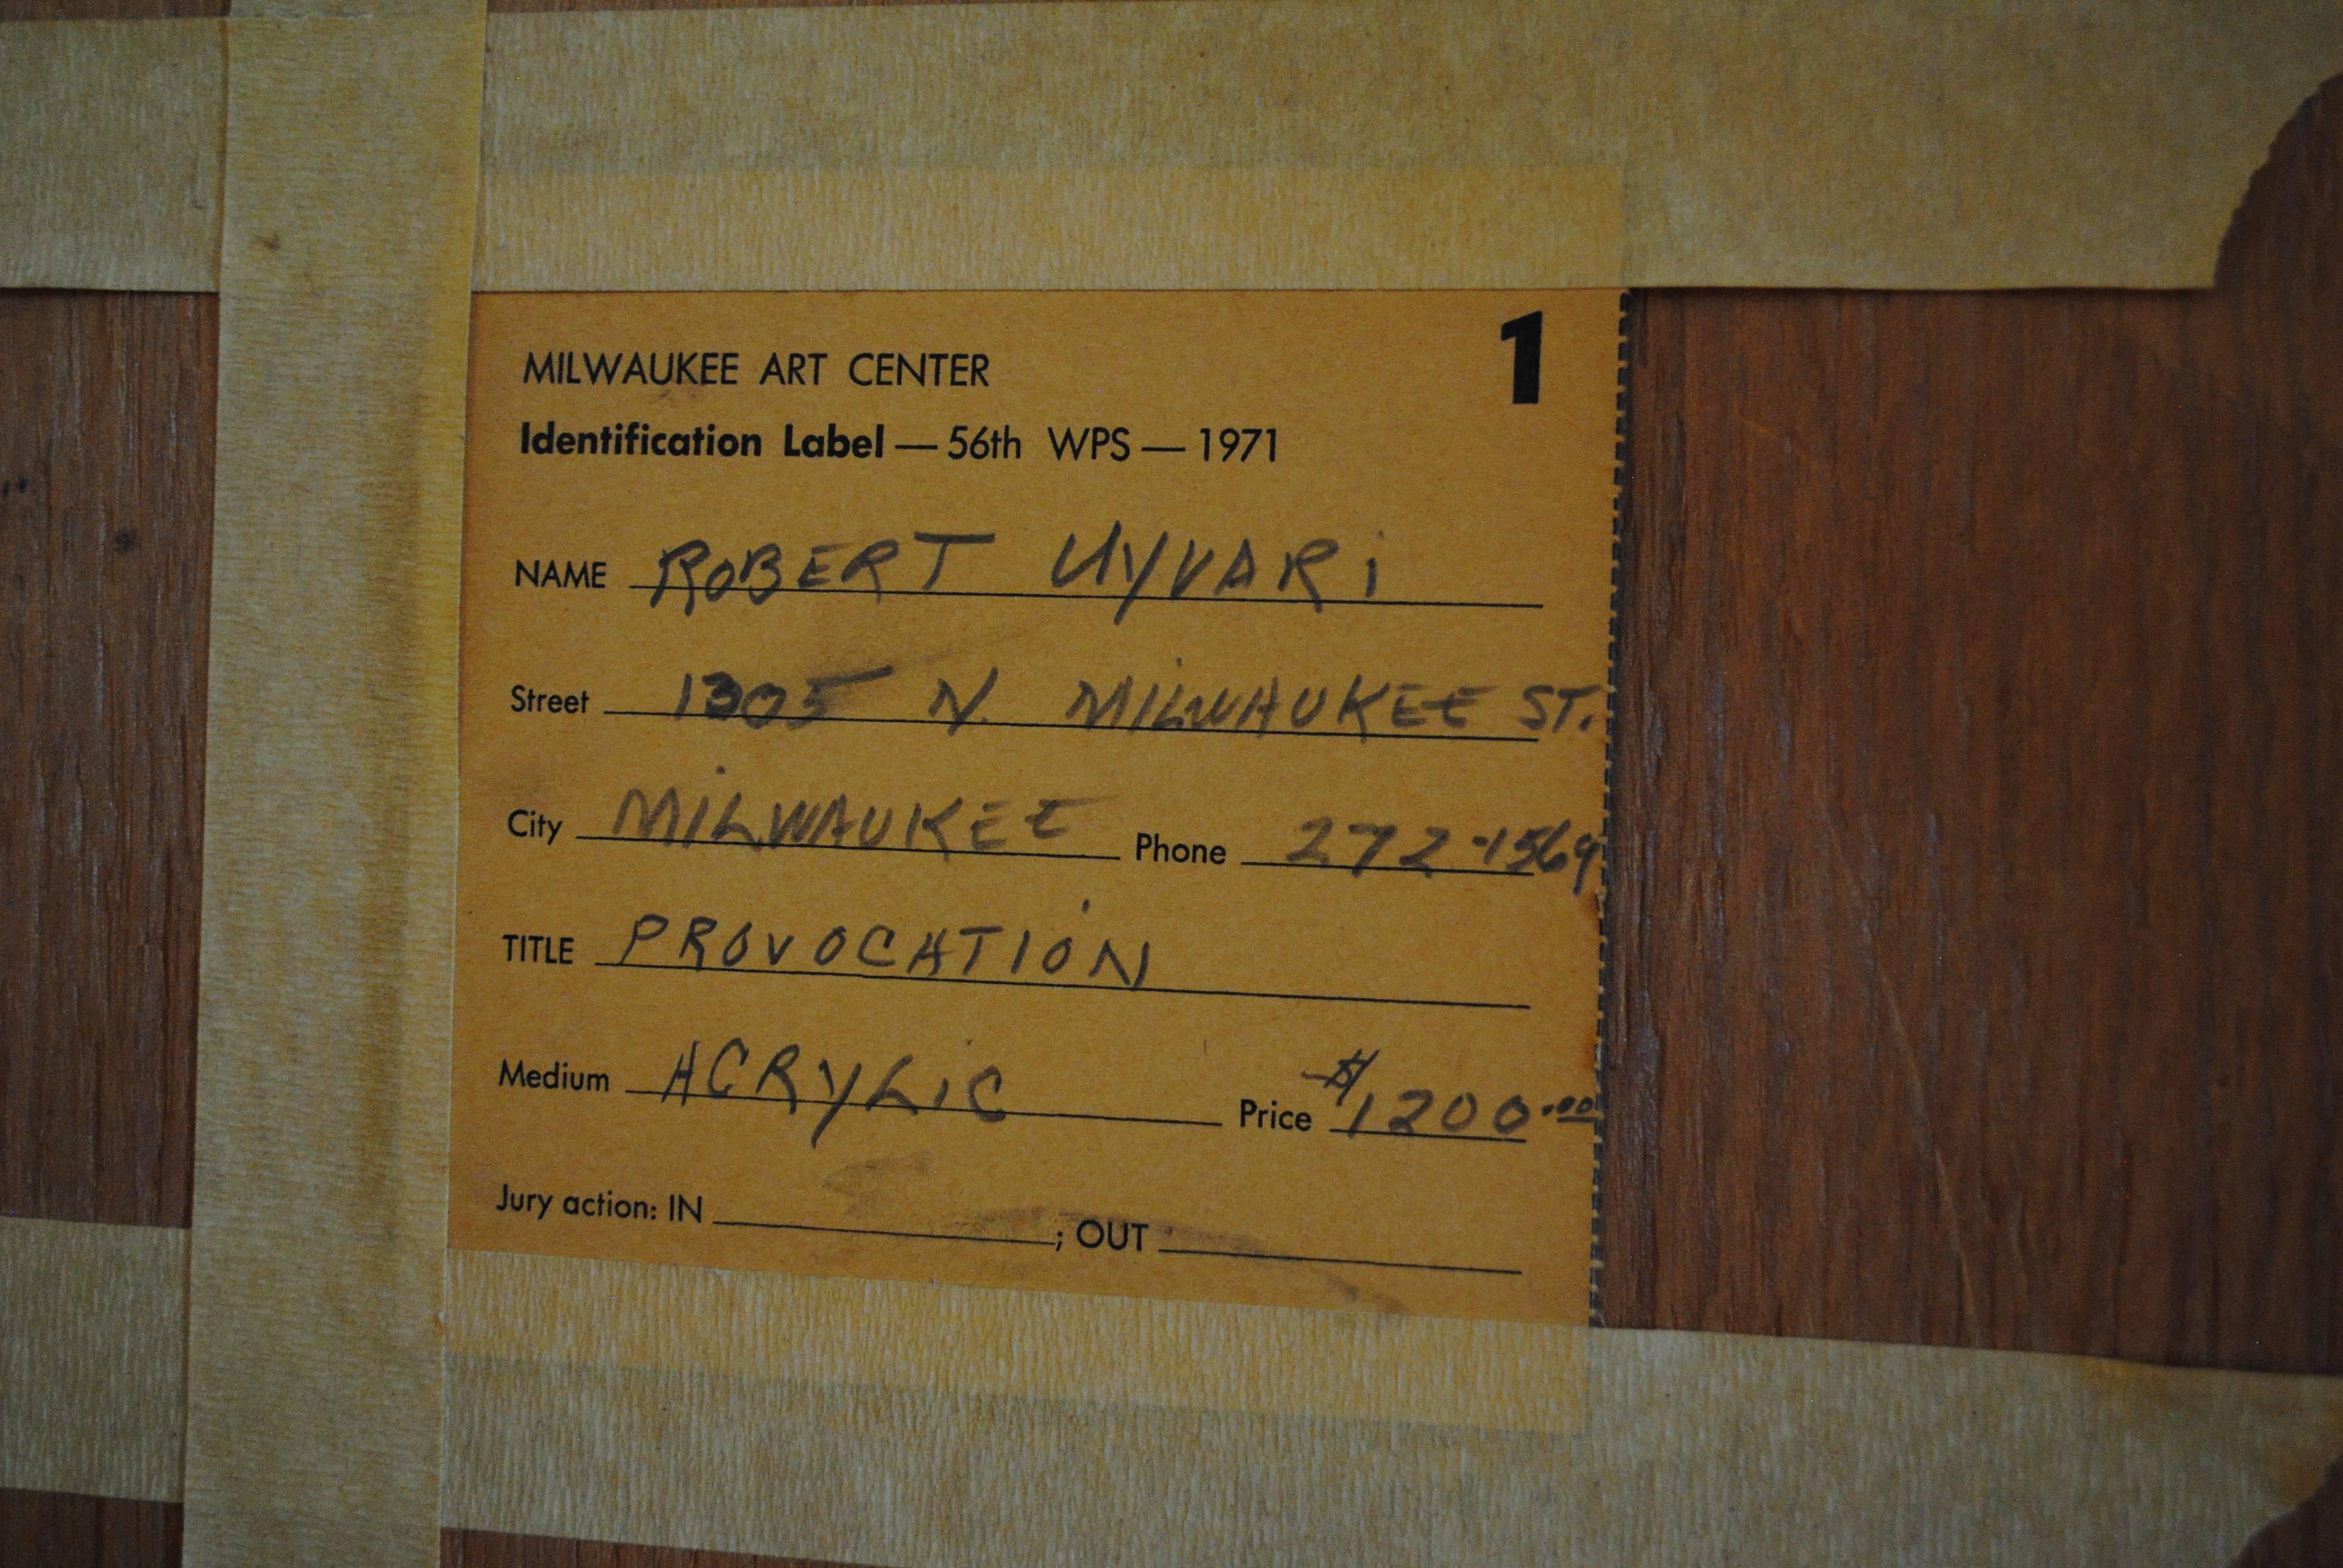 MILWAUKEE ART CENTER 1
Identification Label — 56th WPS — 1971
NAME ROBERT UYVARI
Street 1305 N. MILWAUKEE ST.
City MILWAUKEE Phone 272-1569
TITLE PROVOCATION
Medium ACRYLIC Price $1200.00
Jury action: IN ; OUT